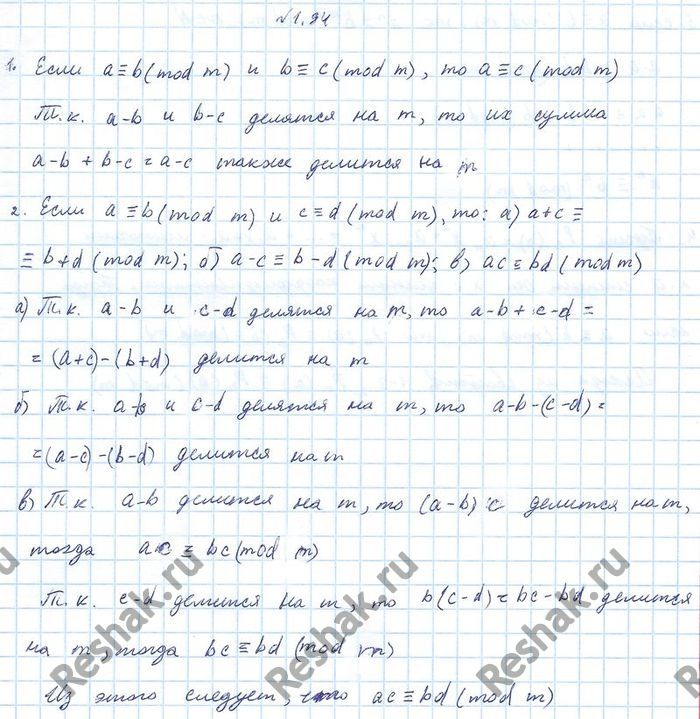 №1.94
1. Если a≡b(mod m) и b≡c(mod m), то a≡c(mod m)
Т.к. a-b и b-c делятся на m, то их сумма
a-b+b-c=a-c также делится на m
2. Если a≡b(mod m) и c≡d(mod m), то: а) a+c≡
≡b+d(mod m); б) a-c≡b-d(mod m); в) ac≡bd(mod m)
а) Т.к. a-b и c-d делятся на m, то a-b+c-d=
=(a+c)-(b+d) делится на m
б) Т.к. a-b и c-d делятся на m, то a-b-(c-d)=
=(a-c)-(b-d) делится на m
в) Т.к. a-b делится на m, то (a-b)·c делится на m,
тогда ac≡bc(mod m)
Т.к. c-d делится на m, то b(c-d)=bc-bd делится
на m, тогда bc≡bd(mod m)
Из этого следует, что ac≡bd(mod m)
Reshak.ru
Reshak.ru
Reshak.ru